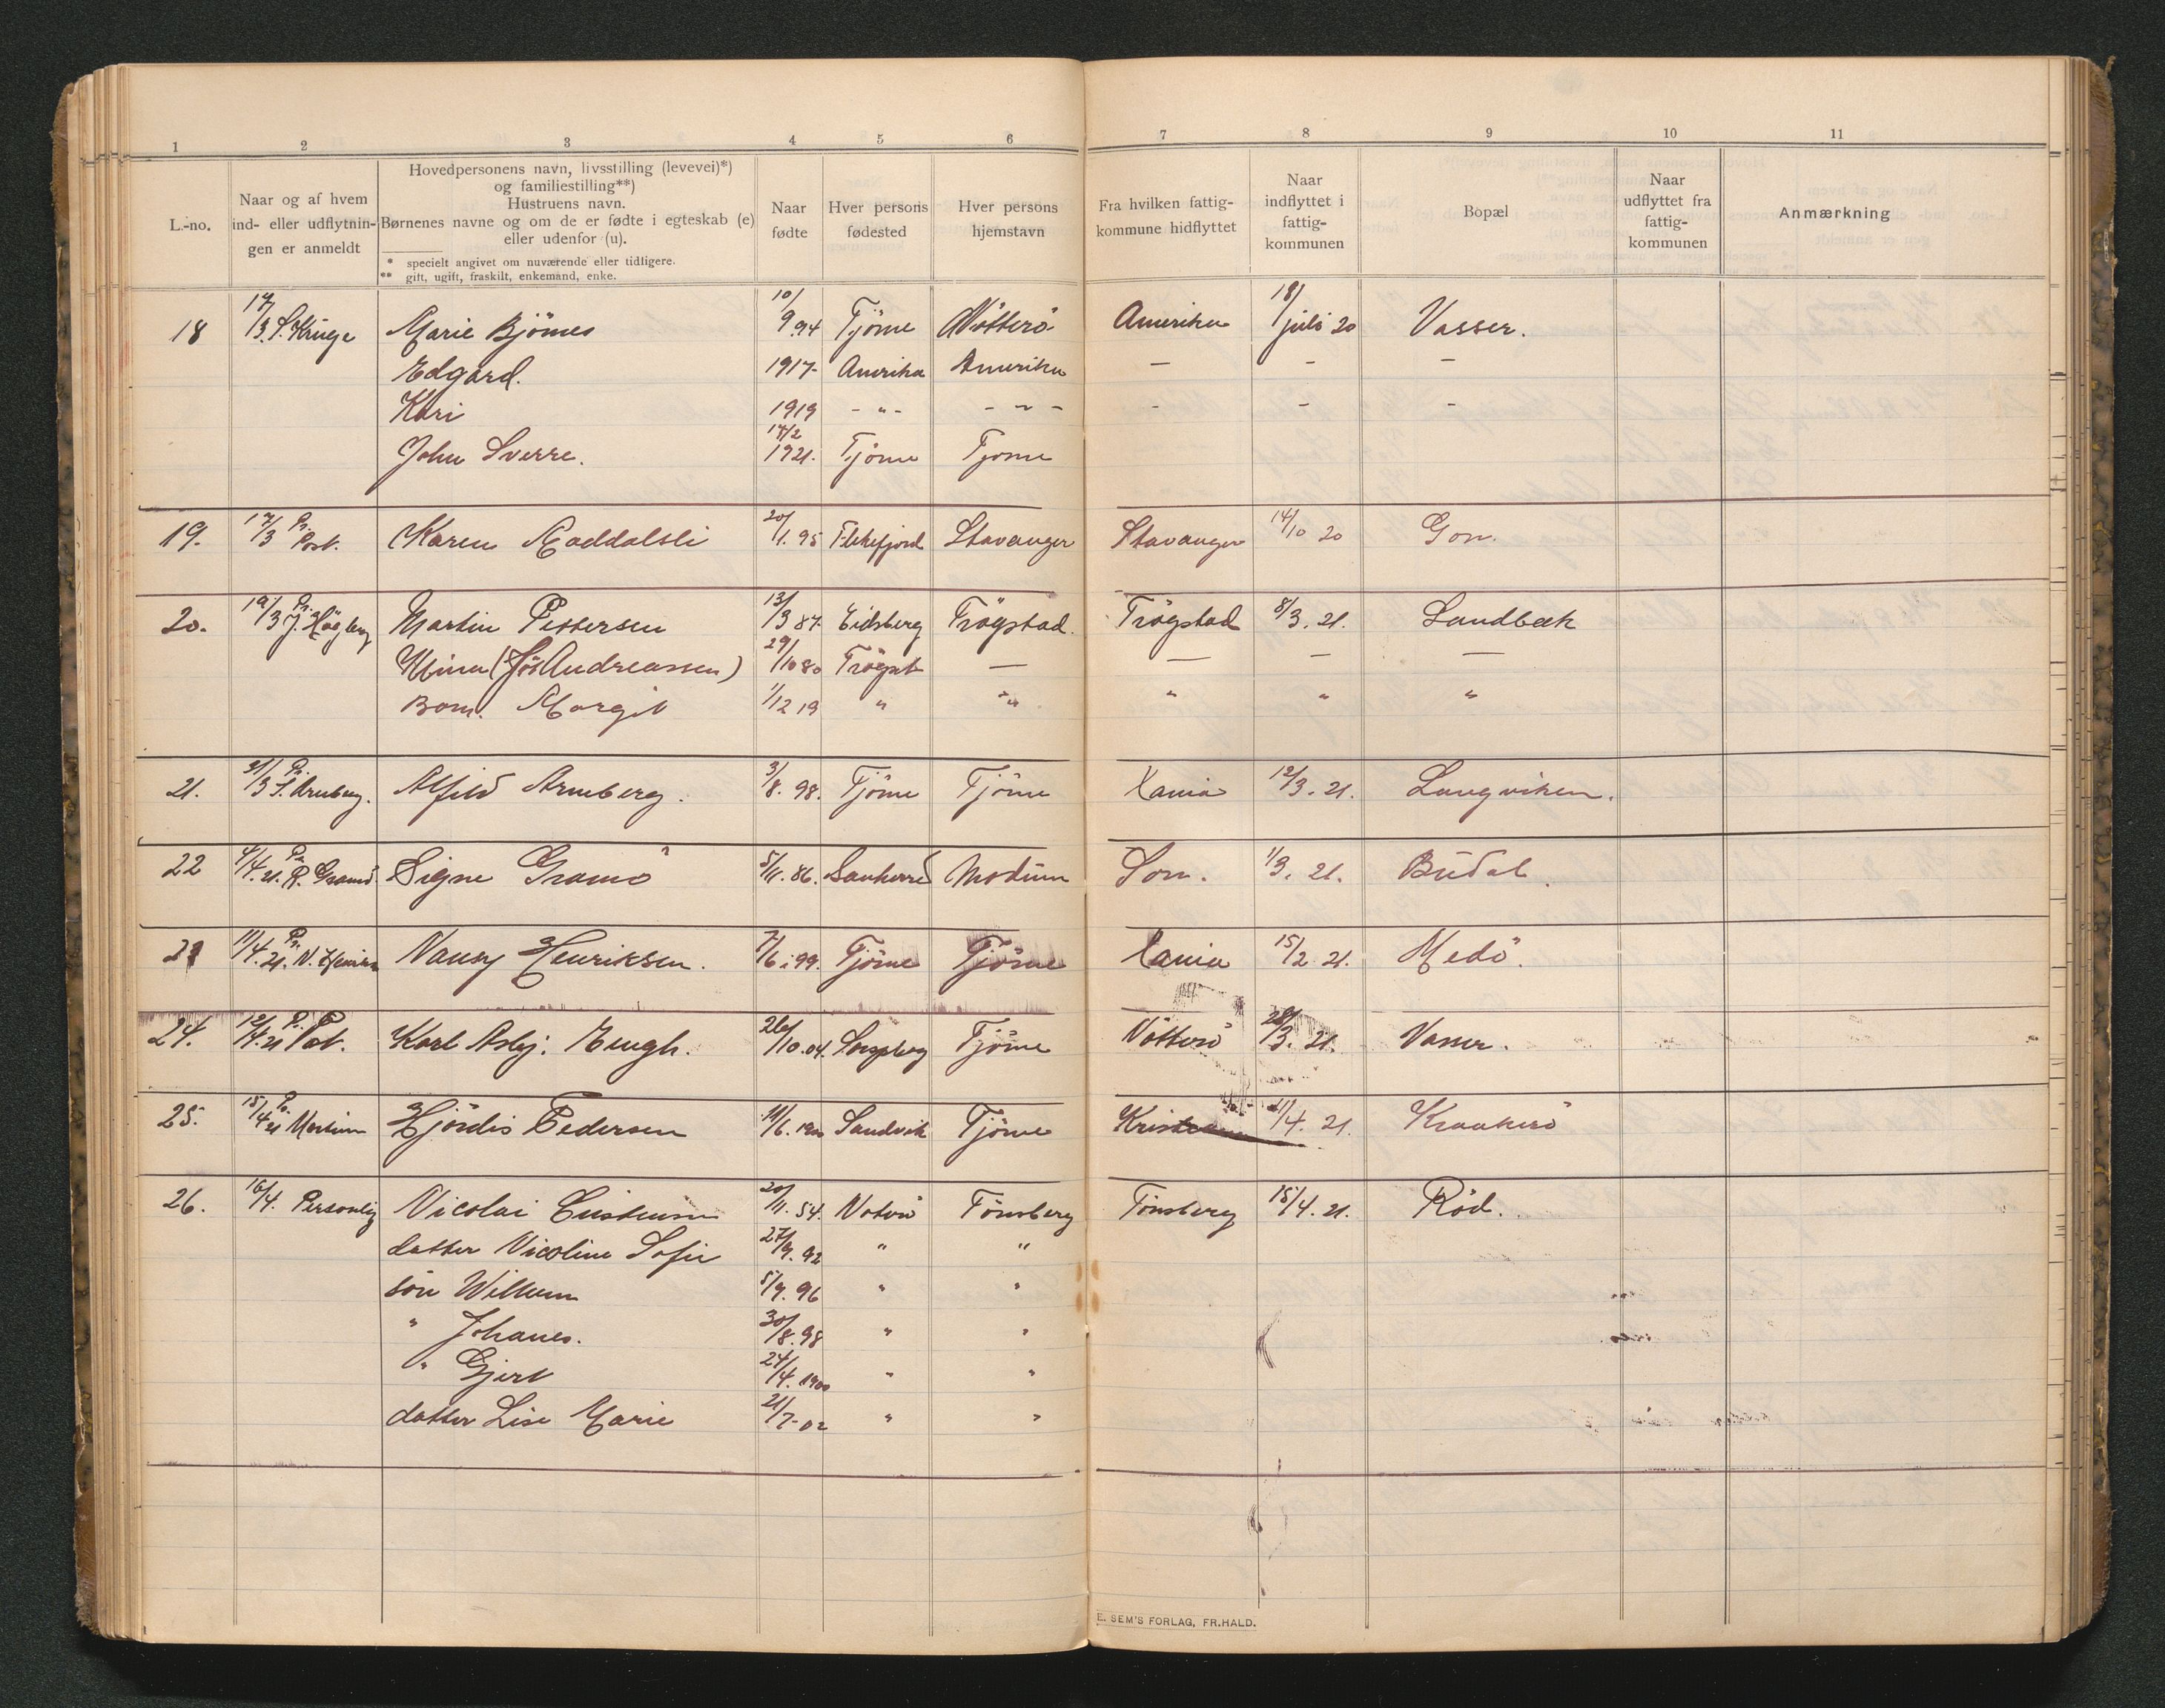 1 2 3 4 5 6 7 8 9 10 11
L.-no.
Naar og af hvem
ind- eller udflytnin-
gen er anmeldt
Hovedpersonens navn, livsstilling (levevei)*)
og familiestilling**)
Hustruens navn.
Børnenes navne og om de er fødte i egteskab (e)
eller udenfor (u).
* specielt angivet om nuværende eller tidligere.
** gift, ugift, fraskilt, enkemand, enke.
Naar
fødte
Hver persons
fødested
Hver persons
hjemstavn
Fra hvilken fattig-
kommune hidflyttet
Naar
indflyttet i
fattig-
kommunen
Bopæl
Naar
udflyttet fra
fattig-
kommunen
Anmærkning
18 17/3. Marie Bjönes 10/9 94 Tjöme Nötterö Amerika 18/juli 20 Vasser.
Edgard. 1917- Amerika Amerika — - —
Kari 1919 - " - - " - - - -
John Sverre. 17/2 1921. Tjöme Tjöme
19. 17/3 Pr. Post. Karen 20/1. 95 Flekefjord Stavanger Stavanger 14/10 20 Gon.
20. 19/3 Pr. J. Högberg Martin Pettersen 13/3 87. Eidsberg Trögstad. Trögstad 8/3. 21. Sandbæk
Mina (fös Andreassen) 29/10 80 Trögst — — — —
Barn. Margit 1/12 19 " " " " "
21. 31/3 Pr. S. Arnberg. Alfild Arnberg. 3/8. 98. Tjöme Tjöme Xania 12/3. 21. Langviken.
22 4/4. 21. Pr. R. Gramö Signe Gramö 5/11. 86. Sanherred Modum Som. 1/3. 21. Budal.
23 11/4. 21. Pr. N. Henriksen Nancy Henriksen. 7/6. 99. Tjöme Tjöme Xania 15/2 21. Medö.
24. 12/4. 21 Pr. Post. Karl Asbj. Bergh. 26/10. 04. Sarpsborg Tjöme Nötterö 28/3. 21. Vasser.
25. 15/4 21 Pr. Martin Hjördis Pedersen 11/6. 1900 Sandvik Tjöme 11/4. 21. Kraakerö
26. 16/4. Personlig Nicolai 20/11. 54. Nöterö Tönsberg Tönsberg 15/4. 21. Röd.
datter Nicoline Sofie 27/9. 92 " "
sön Willum 5/9. 96 " "
" Johanes. 30/8. 98 " "
" Gjert 24/4. 1900 " "
datter Lise Marie 21/7- 02 " "
E. SEM'S FORLAG, FR.HALD.